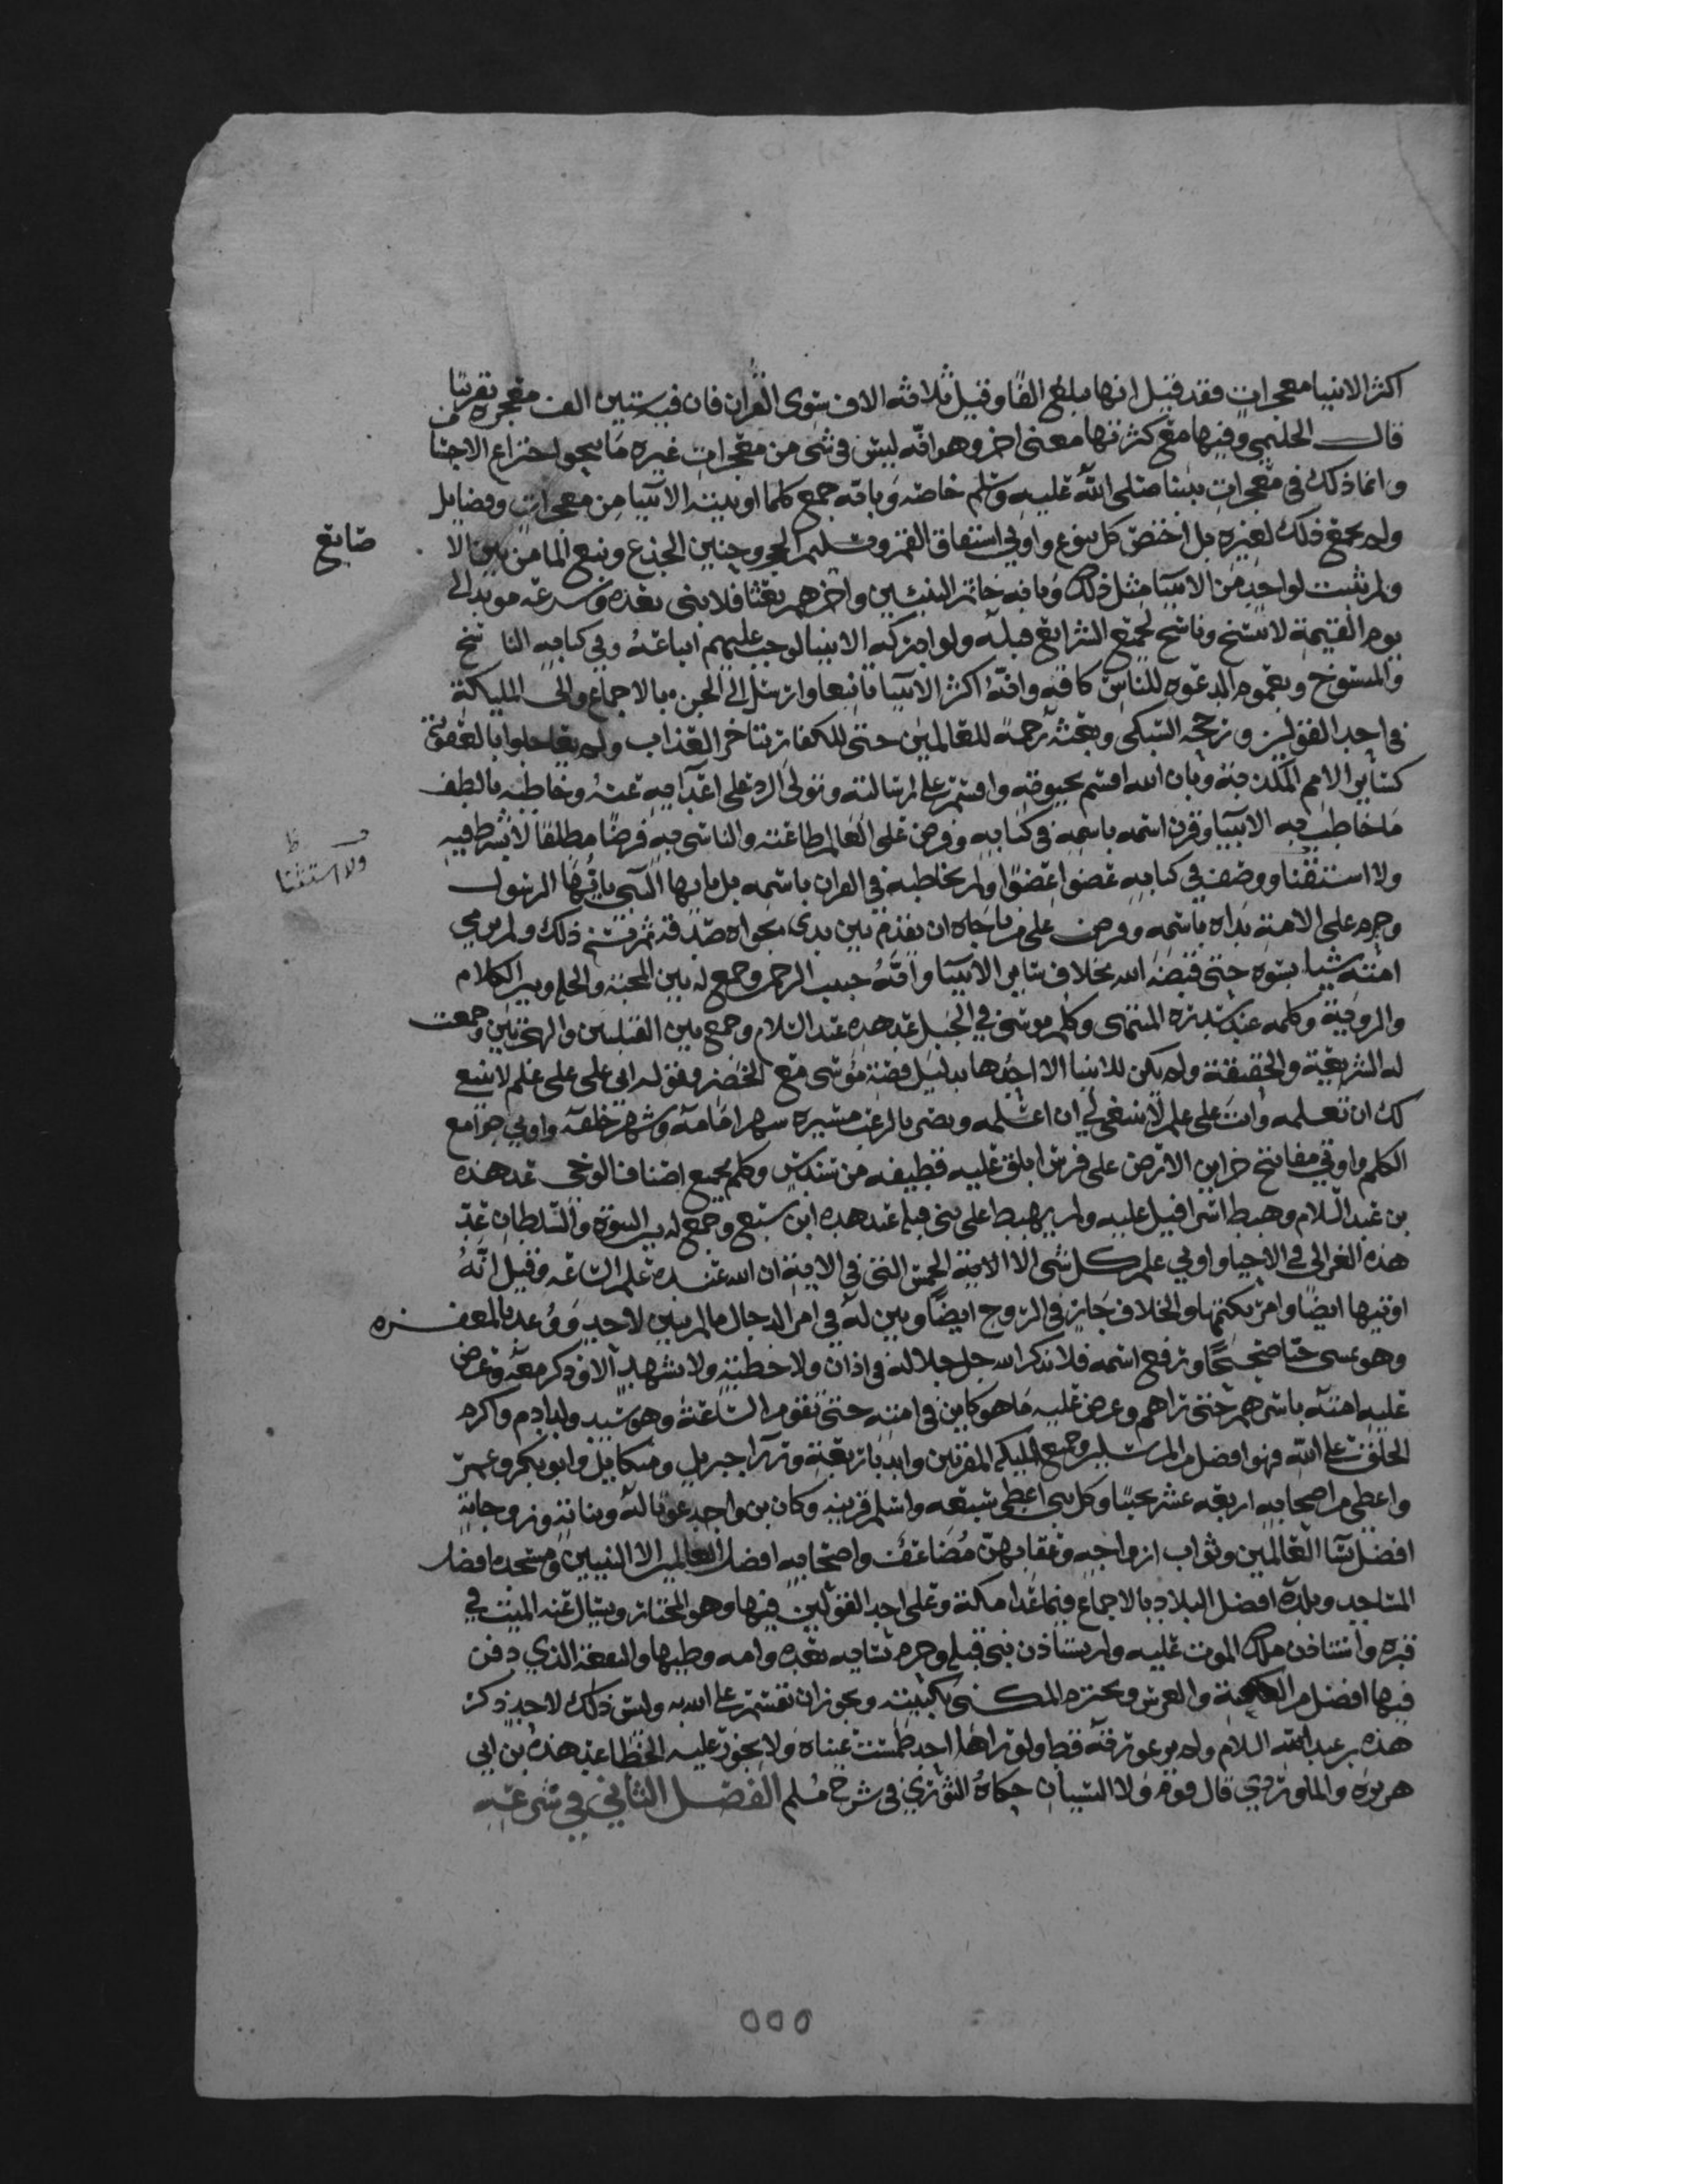 اكثر الانبيا معجزات فقد قيل انها مبلغ الفا وقيل ثلاثه الاف سوى القران فان فيه ستين الف معجزه تقريبا
قال الحليمي وفيها مع كثرتها معنى اخر وهو انه ليس في شى من معجزات غيره ما ينحو اختراع الاجسا
وانما ذلك في معجزات نبينا صلى الله عليه وسلم خاصه وبانه جمع كلما اوتيته الانبيا من معجزات وفضايل
ولم يجمع ذلك لغيره بل اختص كل بنوع واوتي انشقاق القمر وتسليم الحجر وحنين الجذع ونبع الما من بين الا
صابع
ولم يثبت لواحد من الانبيا مثل ذلك وبانه خاتم النبيين واخرهم بعثا فلا نبى بعده وشرعه مويد الى
يوم القيمة لا ينسخ وناسخ لجميع الشرايع قبله ولو ادركه الانبيا لوجب عليهم اتباعه وفي كتابه الناسخ
والمنسوخ وبعموم الدعوه للناس كافه وانه اكثر الانبيا تابعا وارسل الى الجن بالاجماع والى المليكة
في احد القولين ورجحه السبكي وبعثه رحمة للعالمين حتى للكفار بتاخر العذاب ولم يعاجلوا بالعقوبة
كساير الامم المكذبة وبان الله اقسم بحيوته واقسم على رسالته وتولى الرد على اعدآيه عنه وخاطبه بالطف
ما خاطب به الانبيا وقرن اسمه باسمه في كتابه وفرض على العالم طاعته والتاسى به فرضا مطلقا لا شرط فيه
ولا استثنا ووصفه في كتابه عضوا عضوا ولم يخاطبه في القران باسمه بل يايها النبى يايها الرسول
ولا استثنا
ظ
وحرم على الامة نداه باسمه وفرض على من ناجاه ان يقدم بين يدى نجواه صدقه ثم نسخ ذلك ولم يره في
امته شيا يسوه حتى قبضه الله بخلاف ساير الانبيا وانه حبيب الرحمن وجمع له بين المحبة والخلة وبين الكلام
والروية وكلمه عند سدرة المنتهى وكلم موسى في الجبل عد هذه عبد السلام وجمع بين القبلتين والهجرتين وجمعت
له الشريعة والحقيقة ولم يكن للانبيا الا احدها بدليل قصة موسى مع الخضر وقوله انى على علم لا ينبغي
لك ان تعلمه وانت على علم لا ينبغي لي ان اعلمه ونصر بالرعب مسيرة شهر امامه وشهر خلفه واوتي جوامع
الكلم واوتي مفاتيح خزاين الارض على فرس ابلق عليه قطيفه من سندس وكلم بجميع اصناف الوحى عد هذه
بن عبد السلام وهبط اسرافيل عليه ولم يهبط على نبى قبله عد هذه ابن سبع وجمع له بين النبوة والسلطان عد
هذه الغزالى في الاحيا واوتي علم كل شى الا الامية الخمس التى في الاية ان الله عنده علم الساعه وقيل انه
اوتيها ايضا وامر بكتمها والخلاف جار في الروح ايضا وبين له في امر الدجال ما لم يبين لاحد ووعد بالمغفره
وهو يمسى حيا صحيحا ورفع اسمه فلا يذكر الله جل جلاله في اذان ولا خطبة ولا تشهد الا وذكر معه وعرض
عليه امته باسرهم حتى راهم وعرض عليه ما هو كاين في امته حتى تقوم الساعة وهو سيد ولد ادم واكرم
الخلق على الله فهو افضل من المرسلين وجميع المليكه المقربين وايد باربعة وزرآ جبريل وميكاييل وابو بكر وعمر
واعطى من اصحابه اربعه عشر نجيبا وكل نبى اعطى سبعه واسلم قرينه وكان من واجد عونا له وبناته وزوجاته
افضل نسا العالمين وثواب ازواجه وعقابهن مضاعف واصحابه افضل العالمين الا النبيين ومسجده افضل
المساجد وبلده افضل البلاد بالاجماع فيما عدا مكة وعلى احد القولين فيها وهو المختار ويسال عنه الميت في
قبره واستاذن ملك الموت عليه ولم يستاذن نبى قبله وحرم نسايه بعده وامه وطيها والبقعة الذي دفن
فيها افضل من الكعبة والعرش ويحرم التكنى بكنيته ويجوز ان يقسم على الله به وليس ذلك لاحد ذكر
هذه بن عبد السلام ولم ير عورته قط ولو راها احد طمست عيناه ولا يجوز عليه الخطا عد هذه بن ابي
هريره والماوردي قال قوم ولا النسيان حكاه النووي في شرح مسلم الفصل الثاني في شرعته